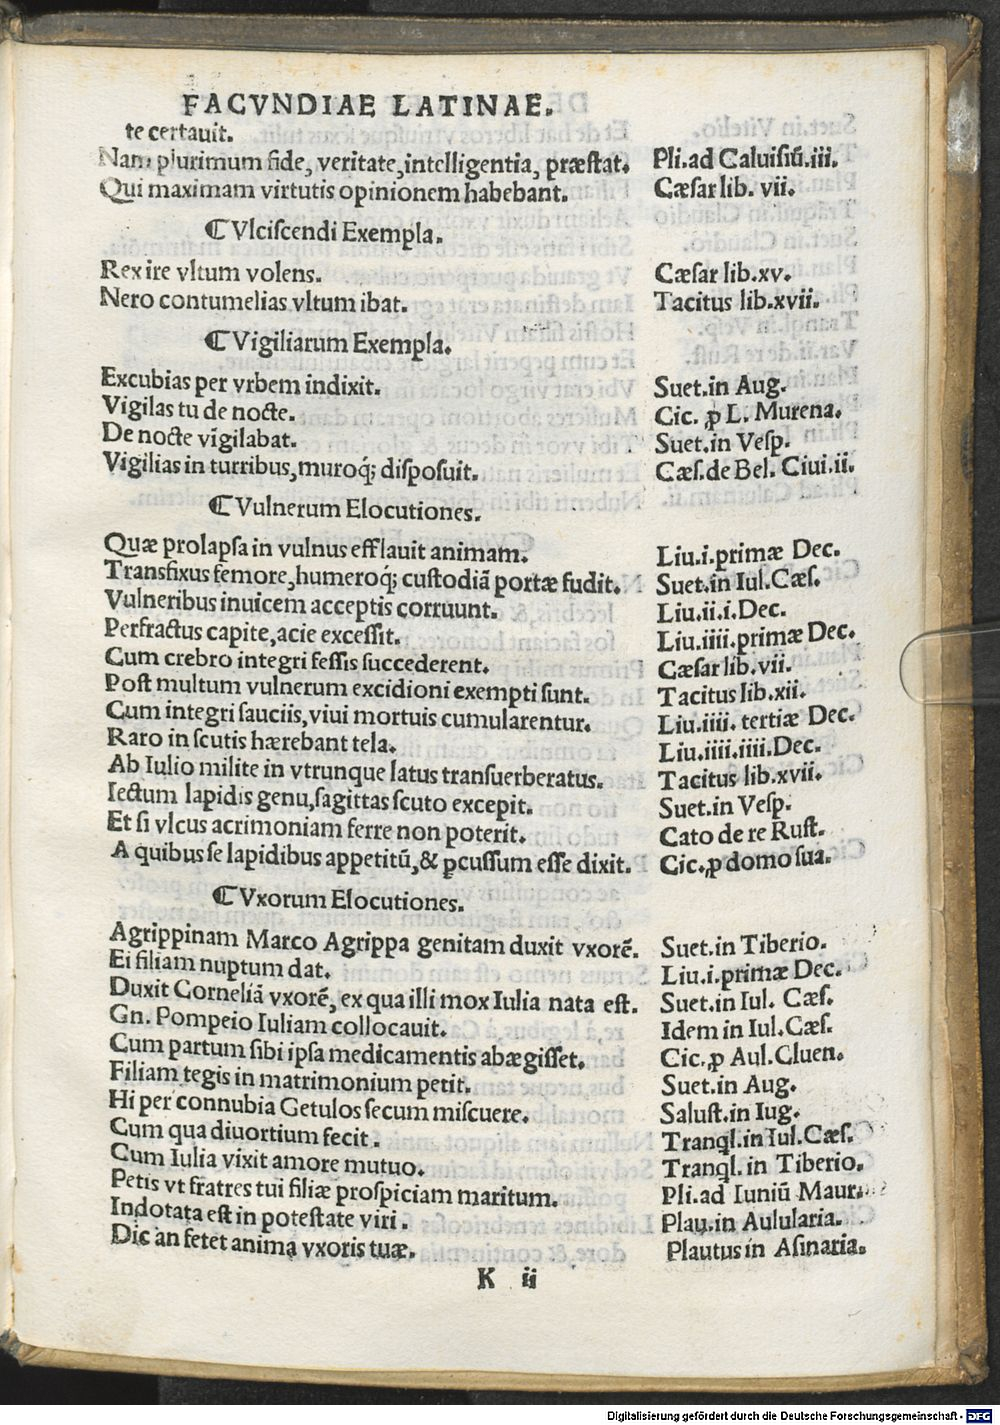 FACVNDIAE LATINAE.
te certauit.
Nam plurimum fide, veritate, intelligentia, præstat. Pli. ad Caluisiū. iii.
Qui maximam virtutis opinionem habebant. Cæsar lib. vii.
¶ Vlciscendi Exempla.
Rex ire vltum volens. Cæsar lib. xv.
Nero contumelias vltum ibat. Tacitus lib. xvii.
¶ Vigiliarum Exempla.
Excubias per vrbem indixit. Suet. in Aug.
Vigilas tu de nocte. Cic. ꝓ L. Murena.
De nocte vigilabat. Suet. in Vesp.
Vigilias in turribus, muroq; disposuit. Cæs. de Bel. Ciui. ii.
¶ Vulnerum Elocutiones.
Quæ prolapsa in vulnus efflauit animam. Liu. i. primæ Dec.
Transfixus femore, humeroq; custodiā portæ fudit. Suet. in Iul. Cæs.
Vulneribus inuicem acceptis corruunt. Liu. ii. i. Dec.
Perfractus capite, acie excessit. Liu. iiii. primæ Dec.
Cum crebro integri fessis succederent. Cæsar lib. vii.
Post multum vulnerum excidioni exempti sunt. Tacitus lib. xii.
Cum integri sauciis, viui mortuis cumularentur. Liu. iiii. tertiæ Dec.
Raro in scutis hærebant tela. Liu. iiii. iiii. Dec.
Ab Iulio milite in vtrunque latus transuerberatus. Tacitus lib. xvii.
Iectum lapidis genu, sagittas scuto excepit. Suet. in Vesp.
Et si vlcus acrimoniam ferre non poterit. Cato de re Rust.
A quibus se lapidibus appetitū, & ꝑcussum esse dixit. Cic. ꝓ domo sua.
¶ Vxorum Elocutiones.
Agrippinam Marco Agrippa genitam duxit vxorē. Suet. in Tiberio.
Ei filiam nuptum dat. Liu. i. primæ Dec.
Duxit Corneliā vxorē, ex qua illi mox Iulia nata est. Suet. in Iul. Cæs.
Gn. Pompeio Iuliam collocauit. Idem in Iul. Cæs.
Cum partum sibi ipsa medicamentis abægisset. Cic. ꝓ Aul. Cluen.
Filiam tegis in matrimonium petit. Suet. in Aug.
Hi per connubia Getulos secum miscuere. Salust. in Iug.
Cum qua diuortium fecit. Tranql. in Iul. Cæs.
Cum Iulia vixit amore mutuo. Tranql. in Tiberio.
Petis vt fratres tui filiæ prospiciam maritum. Pli. ad Iuniū Maur.
Indotata est in potestate viri. Plau. in Aulularia.
Dic an fetet anima vxoris tuæ. Plautus in Asinaria.
K ii
Digitalisierung gefördert durch die Deutsche Forschungsgemeinschaft - DFG